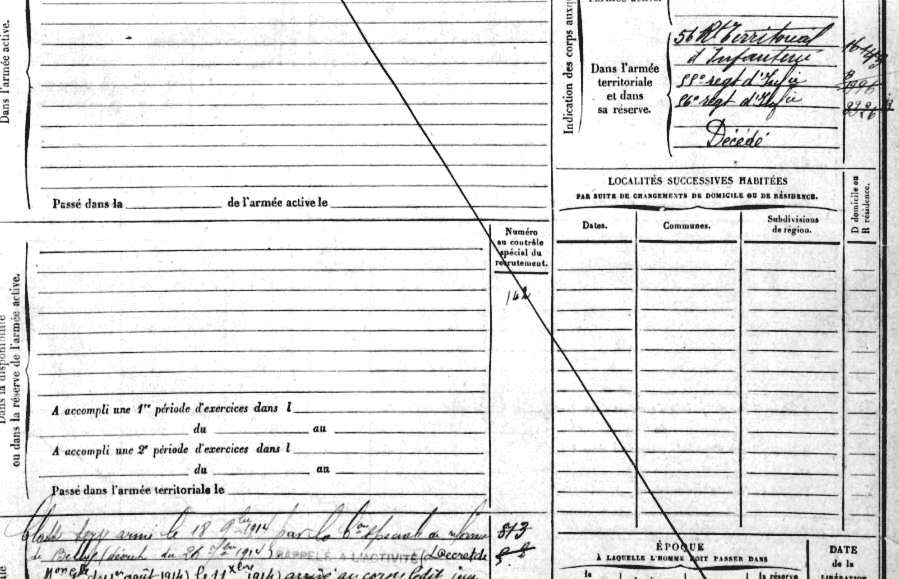 Dans l'armée active.
Passé dans la de l'armée active le
Indication des corps auxq
Dans l'armée
territoriale
et dans
sa réserve.
56 Rt Territorial
d'Infanterie
88e regt d'Infie
86e regt d'Infie
Décédé
LOCALITÉS SUCCESSIVES HABITÉES
PAR SUITE DE CHANGEMENTS DE DOMICILE OU DE RÉSIDENCE.
Dates.
Communes.
Subdivisions
de région.
D domicile ou
R résidence.
Numéro
au contrôle
spécial du
recrutement.
142
Dans la disponibilité
ou dans la réserve de l'armée active.
A accompli une 1re période d'exercices dans l
du au
A accompli une 2e période d'exercices dans l
du au
Passé dans l'armée territoriale le
Classé serv armé le 18 9bre 1914 par la Con spéciale de réforme
de Belley (décision du 26 7bre 1914) RAPPELÉ A L'ACTIVITÉ (Décret de
août 1914) le 11 Xbre 1914) arrivé au corps ledit jour
813
ÉPOQUE
À LAQUELLE L'HOMME DOIT PASSER DANS
la
la réserve
DATE
de la
LIBÉRATION